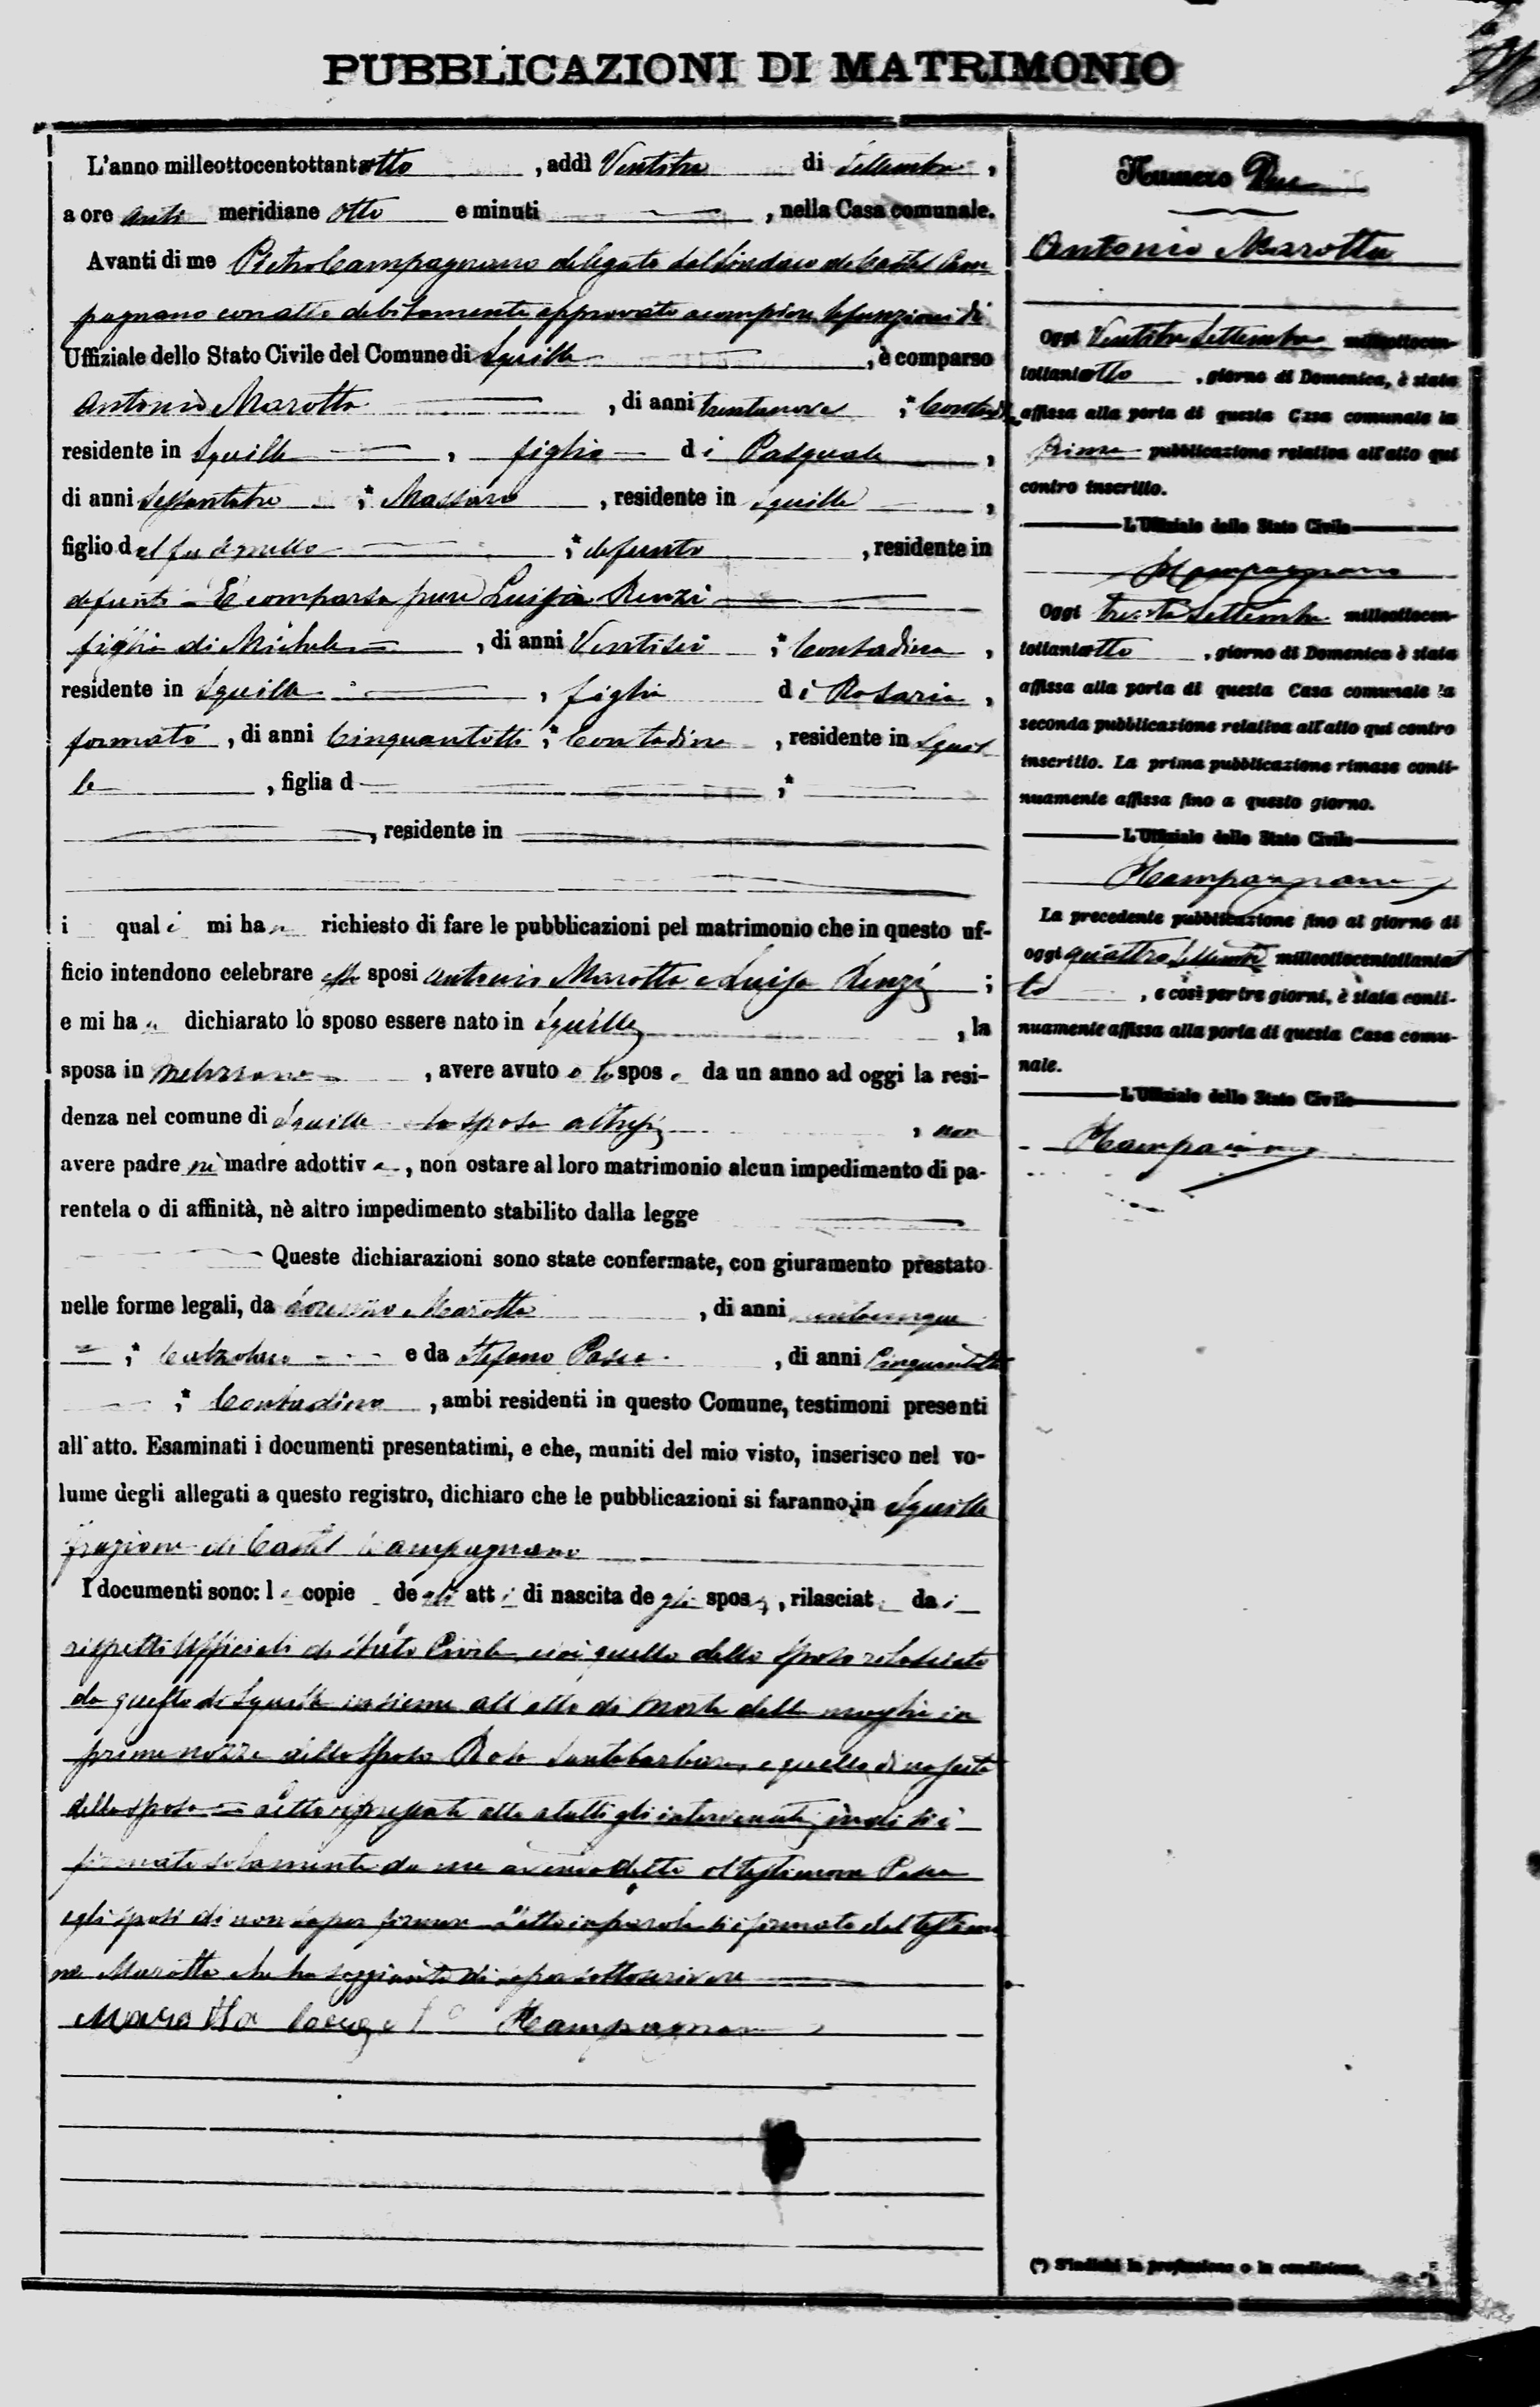 PUBBLICAZIONI DI MATRIMONIO
L'anno milleottocentottantotto, addì Ventitre di Settembre,
a ore Anti meridiane otto e minuti, nella Casa comunale.
Avanti di me Pietro Campagnano delegato dal Sindaco di Castel Cam
pagnano con atto debitamente approvato a compiere le funzioni di
Uffiziale dello Stato Civile del Comune di Squille, è comparso
Antonio Marotta, di anni trentanove;*
residente in Squille, figlio di Pasquale,
di anni Sessantatre;* Massaro, residente in Squille,
figlio del fu;* defunto, residente in
E comparsa pure Luisa Renzi
figlia di Michele, di anni Ventisei;* Contadina,
residente in Squille, figlia di Rosaria,
formato, di anni Cinquantotto;* Contadina, residente in Squil
le, figlia d;*
, residente in
i quali mi han richiesto di fare le pubblicazioni pel matrimonio che in questo uf-
ficio intendono celebrare essi sposi Antonio Marotta e Luisa Renzi;
e mi han dichiarato lo sposo essere nato in Squille, la
sposa in Melizzano, avere avuto lo sposo da un anno ad oggi la resi-
denza nel comune di Squille la sposa altresì, non
avere padre nè madre adottivo, non ostare al loro matrimonio alcun impedimento di pa-
rentela o di affinità, nè altro impedimento stabilito dalla legge
Queste dichiarazioni sono state confermate, con giuramento prestato
nelle forme legali, da Marotta, di anni
;* e da Stefano, di anni
;* Contadino, ambi residenti in questo Comune, testimoni presenti
all'atto. Esaminati i documenti presentatimi, e che, muniti del mio visto, inserisco nel vo-
lume degli allegati a questo registro, dichiaro che le pubblicazioni si faranno in Squille
frazione di Castel Campagnano
I documenti sono: le copie degli atti di nascita degli sposi, rilasciate dai
rispetti Ufficiali di Stato Civile, cioè quello dello sposo rilasciato
da questo di Squille insieme all'atto di morte della moglie in
prime nozze dello sposo Rosa Santabarbara, e quello di nascita
della sposa atto a tutti gli intervenuti, indi si è
firmato solamente da me avendo detto il testimone
e gli sposi di non saper firmare si è firmato dal testimo
ne Marotta che ha soggiunto di saper sottoscrivere
Marotta Campagnano
Numero Due
Antonio Marotta
Oggi Ventitre Settembre milleottocen-
tottantotto, giorno di Domenica, è stata
affissa alla porta di questa Casa comunale la
prima pubblicazione relativa all'atto qui
contro inscritto.
L'Uffiziale dello Stato Civile
PCampagnano
Oggi trenta Settembre milleottocen-
tottantotto, giorno di Domenica è stata
affissa alla porta di questa Casa comunale la
seconda pubblicazione relativa all'atto qui contro
inscritto. La prima pubblicazione rimase conti-
nuamente affissa fino a questo giorno.
L'Uffiziale dello Stato Civile
PCampagnano
La precedente pubblicazione fino al giorno di
oggi quattro milleottocentottantot
to, e così per tre giorni, è stata conti-
nuamente affissa alla porta di questa Casa comu-
nale.
L'Uffiziale dello Stato Civile
PCampagnano
(*) S'indichi la professione o la condizione.